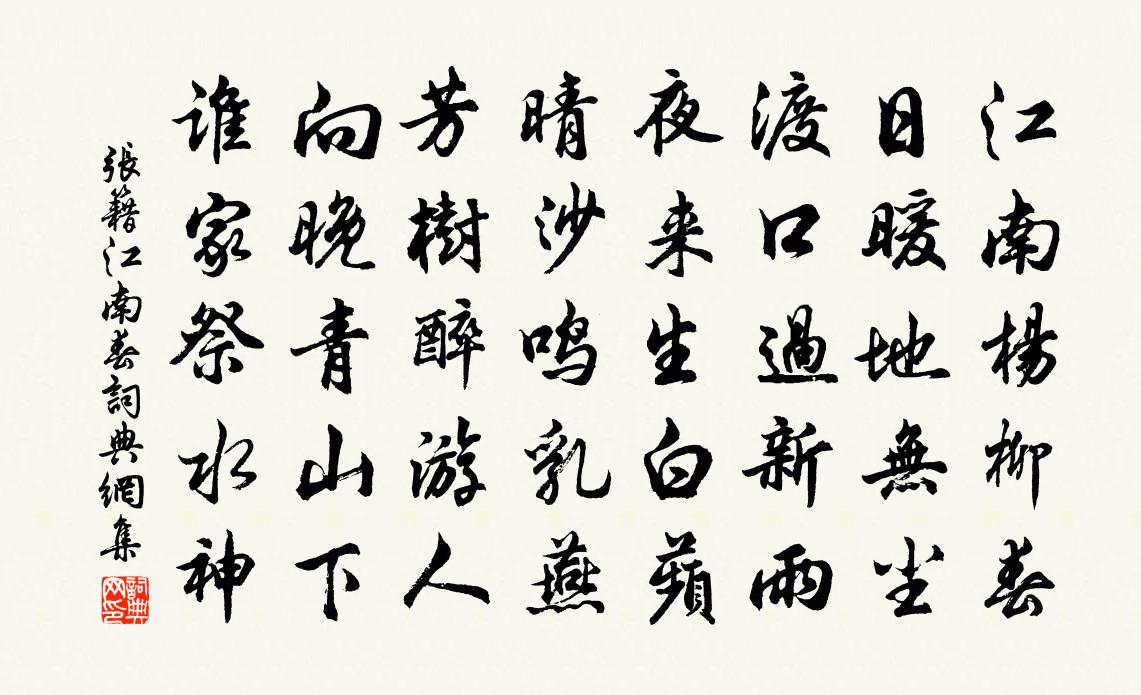 江南楊柳春
日暖地無尘
渡口過新雨
夜来生白蘋
晴沙鳴乳燕
芳樹醉游人
向晚青山下
谁家祭水神
張籍江南春詞典網集
詞典网印